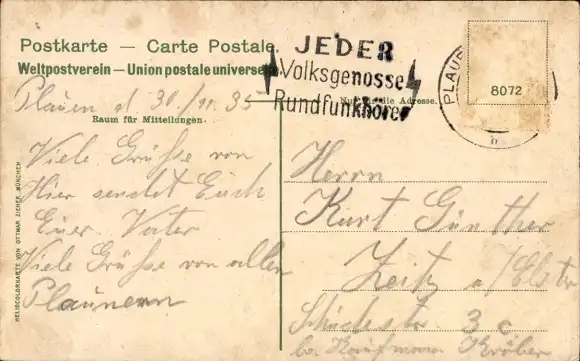 Postkarte — Carte Postale.
Weltpostverein — Union postale universe
JEDER
Volksgenosse
Rundfunkhörer
PLAU
8072
Plauen d 30/11. 35
Nur für die Adresse.
Raum für Mitteilungen.
Viele Grüße von
Hier sendet Euch
Euer Vater
Viele Grüße von allen
Plaunern
Herrn
Kurt Günther
Zeitz a/Elster
3 c
bei Kaufmann
HELIOCOLORKARTE VON OTTMAR ZIEHER, MÜNCHEN